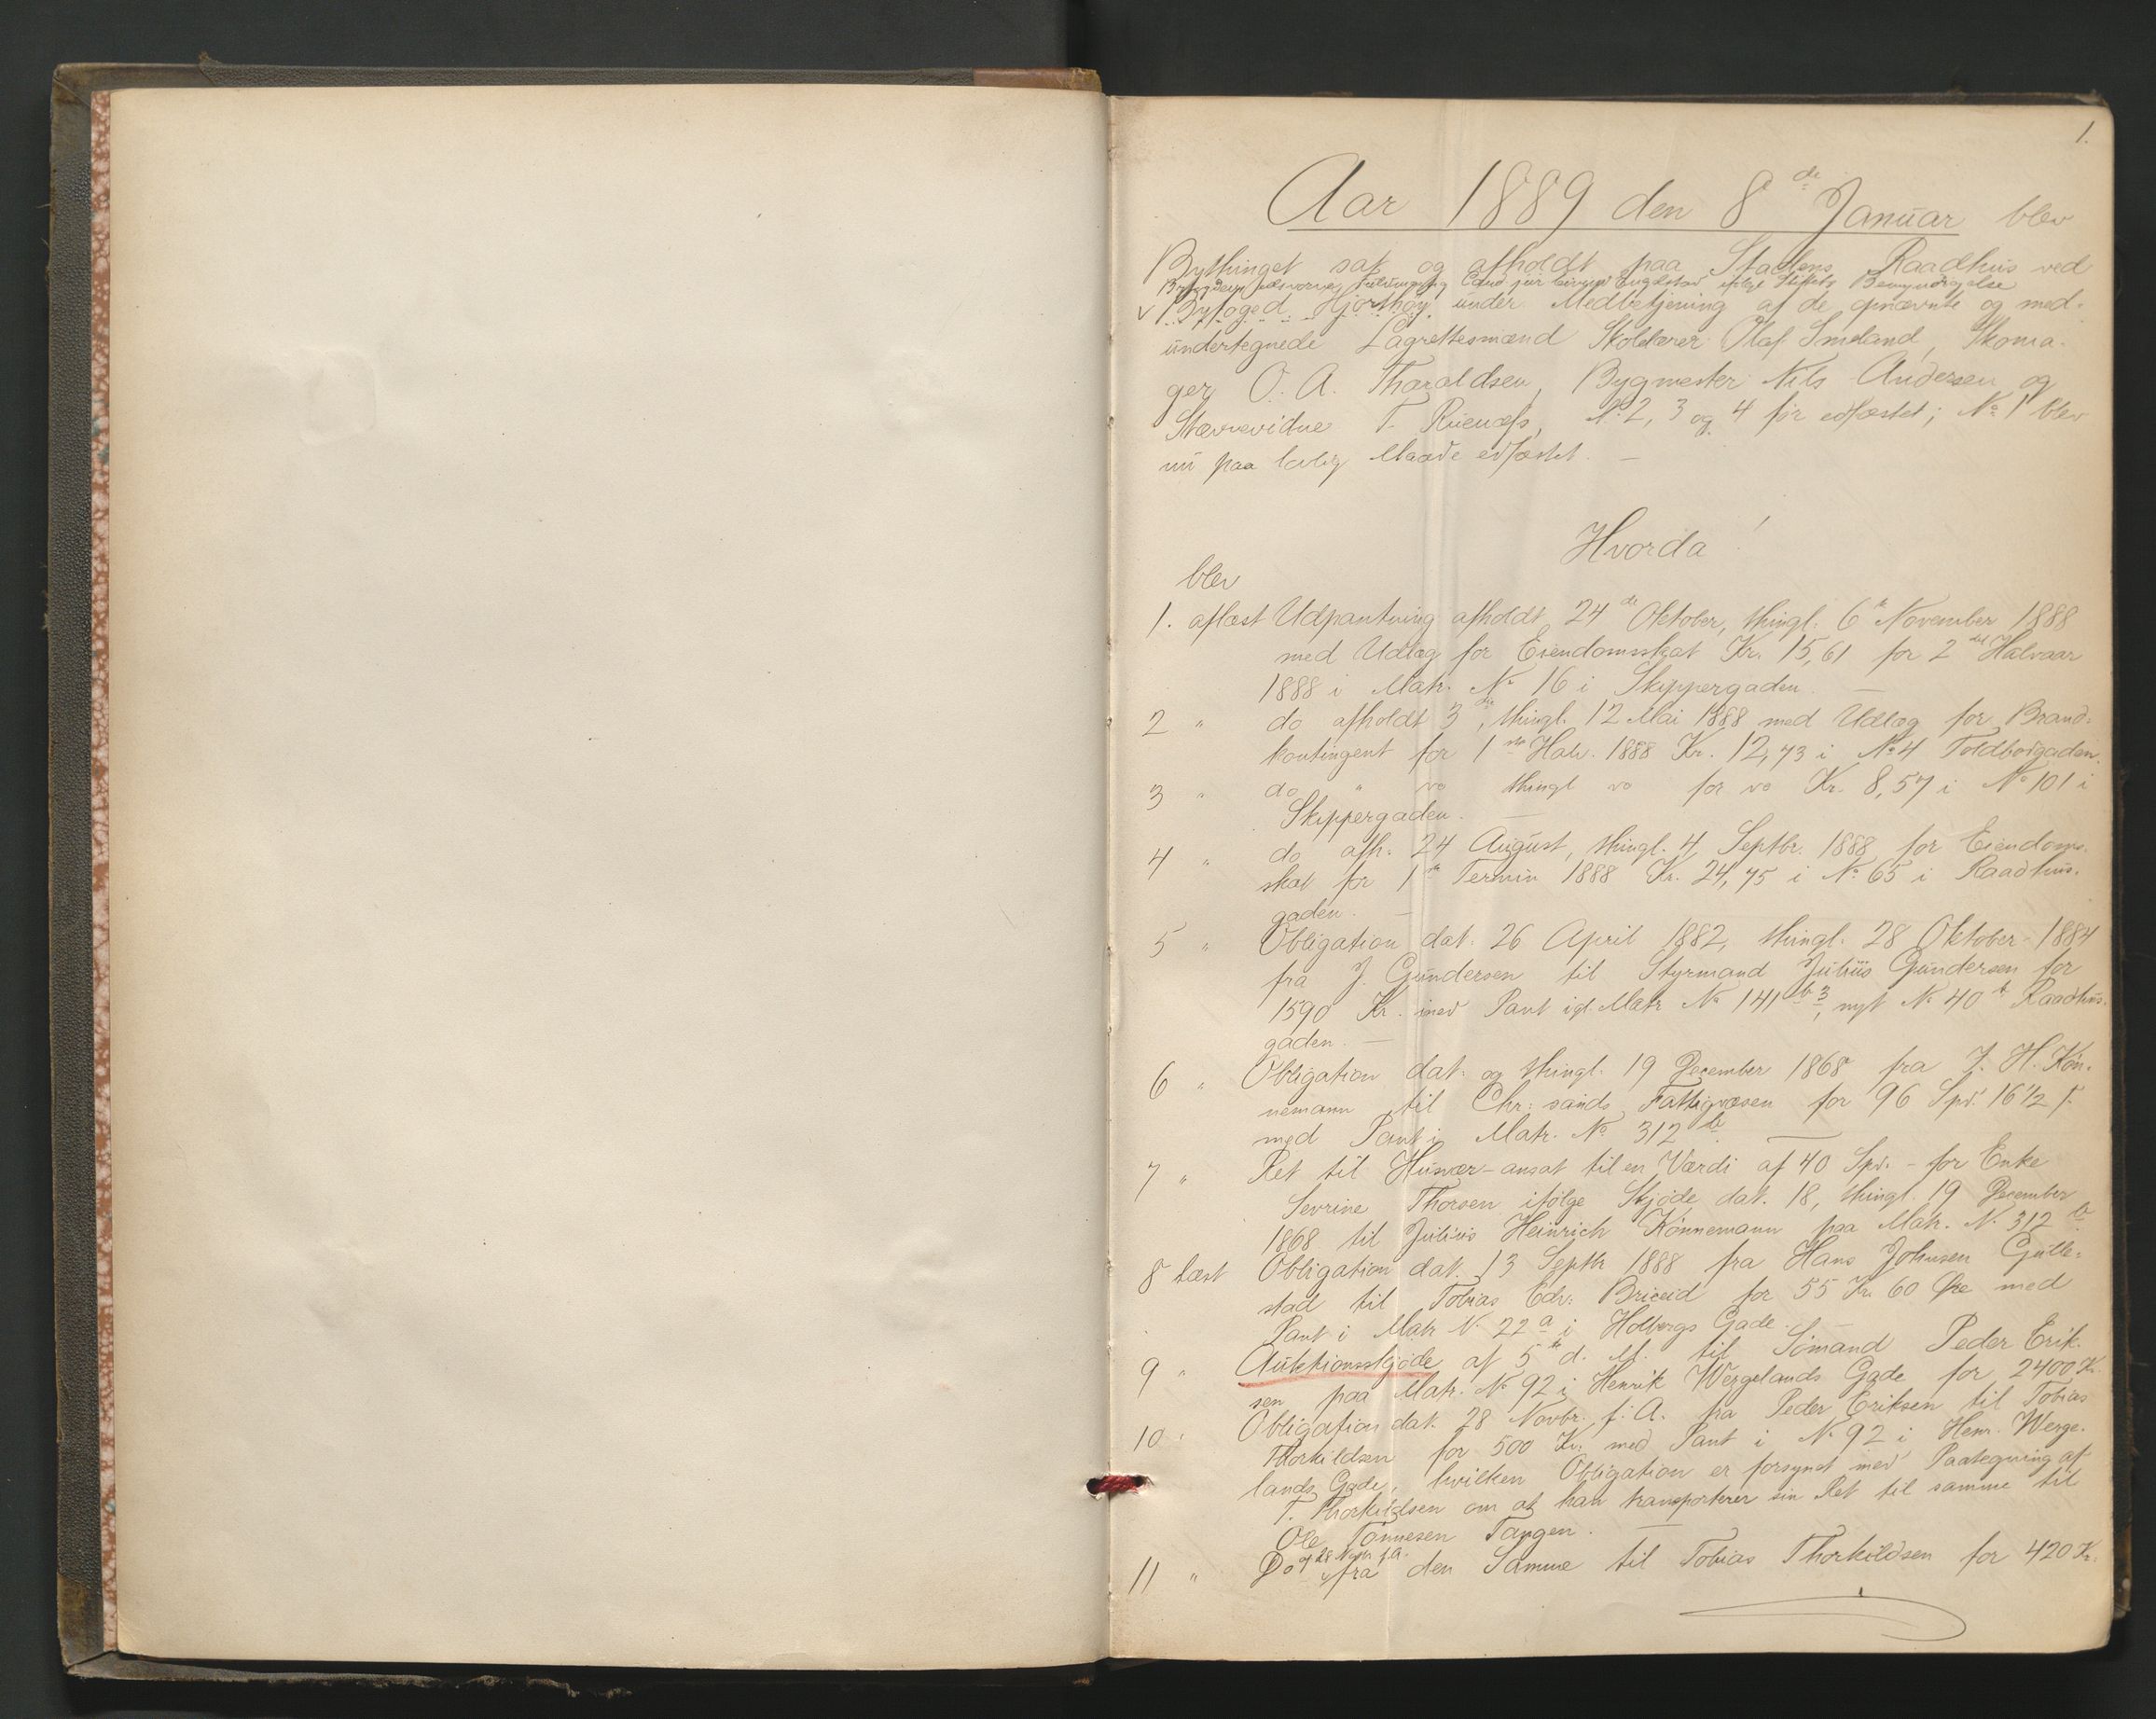 1.
Aar 1889 den 8de Januar blev
Bythinget sat og afholdt paa Stadens Raadhus ved
ifølge Stiftets Bemyndigelse
Byfoged Hjorthøy under Medbetjening af de opnævnte og med-
undertegnede Lagrettesmænd Skolelærer Olaf Smeland, Skoma-
ger O. A. Tharaldsen, Bygmester Nils Andersen og
Stævnevidne T. No 2, 3 og 4 før edfæstet; No 1 blev
nu paa lovlig Maade edfæstet. —
Hvorda!
blev
1. aflæst Udpantning afholdt 24de Oktober, thingl. 6te November 1888
med Udlæg for Eiendomsskat Kr. 15,61 for 2det Halvaar
1888 i Matr. No 16 i Skippergaden. —
2 " do afholdt 3die, thingl. 12 Mai 1888 med Udlæg for Brand-
kontingent for 1ste Halv. 1888 Kr. 12,73 i No 4 Toldbodgaden.
3 " do " do thingl do for do Kr. 8,57 i No 101 i
Skippergaden. —
4 " do afh. 24 August, thingl. 4 Septbr. 1888 for Eiendoms-
skat for 1ste Termin 1888 Kr. 24,75 i No 65 i Raadhus-
gaden. —
5 " Obligation dat. 26 April 1882, thingl. 28 Oktober 1884
fra J. Gundersen til Styrmand Julius Gundersen for
1590 Kr. med Pant i gl. Matr No 141 b 3, nyt No 40 b Raadhus-
gaden. —
6 " Obligation dat. og thingl. 19 December 1868 fra J. H. Kön-
nemann til Chr:sands Fattigvæsen for 96 Spd. 16 1/2 ſ.
med Pant i Matr. No 312 b. —
7 " Ret til Husvær - ansat til en Værdi af 40 Spd. - for Enke
Sevrine Thorsen ifølge Skjøde dat. 18, thingl. 19 December
1868 til Julius Heinrich Könnemann paa Matr. No 312 b.
8 læst Obligation dat. 13 Septbr 1888 fra Hans Johnsen Gulle-
stad til Tobias Edv: for 55 Kr. 60 Øre med
Pant i Matr No 22 a i Holbergs Gade. —
9 " Auktionsskjøde af 5te d. M. til Sömand Peder Erik-
sen paa Matr. No 92 i Henrik Wergelands Gade for 2400 Kr.
10 " Obligation dat. 28 Novbr. f. A. fra Peder Eriksen til Tobias
Thorkildsen for 500 Kr. med Pant i No 92 i Henr. Werge-
lands Gade, hvilken Obligation er forsynet med Paategning af
T. Thorkildsen om at han transporterer sin Ret til samme til
Ole Tönnesen Tangen. —
af 28 Novbr. f. A.
11 " Do fra den Samme til Tobias Thorkildsen for 420 Kr.